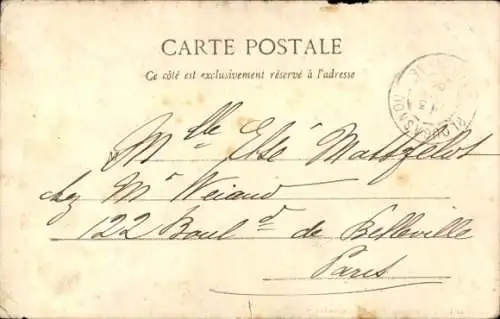 CARTE POSTALE
Ce côté est exclusivement réservé à l'adresse
PLOUGASNOU
M Mlle Elsé Matzfelot
chez Mr Weiand
122 Boul d de Belleville
Paris